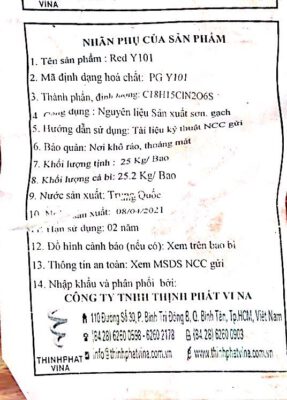 VINA
NHÃN PHỤ CỦA SẢN PHẨM
1. Tên sản phẩm : Red Y101
2. Mã định dạng hoá chất: PG Y101
3. Thành phần, định lượng: C18H15ClN2O6S
4. Công dụng : Nguyên liệu Sản xuất sơn, gạch
5. Hướng dẫn sử dụng: Tài liệu kỹ thuật NCC gửi
6. Bảo quản: Nơi khô ráo, thoáng mát
7. Khối lượng tịnh : 25 Kg/ Bao
8. Khối lượng cả bì: 25.2 Kg/ Bao
9. Nước sản xuất: Trung Quốc
10. xuất: 08/04/2021
11. Hạn sử dụng: 02 năm
12. Đồ hình cảnh báo (nếu có): Xem trên bao bì
13. Thông tin an toàn: Xem MSDS NCC gửi
14. Nhập khẩu và phân phối bởi:
CÔNG TY TNHH THỊNH PHÁT VI NA
110 Đường Số 30, P. Bình Trị Đông B, Q. Bình Tân, Tp.HCM, Việt Nam
(84 28) 6260 0598 - 6260 2178 (84 28) 6260 0903
info@thinhphatvina.com.vn www.thinhphatvina.com.vn
THINHPHAT
VINA